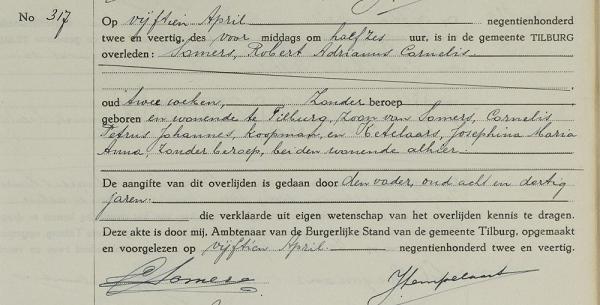 No 317
Op vijftien April negentienhonderd
twee en veertig, des voor middags om half zes uur, is in de gemeente TILBURG
overleden: Somers, Robert Adrianus Cornelis.
oud twee weken, Zonder beroep
geboren en wonende te Tilburg, Zoon van Somers, Cornelis,
Petrus Johannes, Koopman, en Ketelaars, Josephina Maria
Anna, Zonder beroep, beiden wonende alhier.
De aangifte van dit overlijden is gedaan door den vader, oud acht en dertig
jaren.
die verklaarde uit eigen wetenschap van het overlijden kennis te dragen.
Deze akte is door mij, Ambtenaar van de Burgerlijke Stand van de gemeente Tilburg, opgemaakt
en voorgelezen op vijftien April negentienhonderd twee en veertig.
Somers